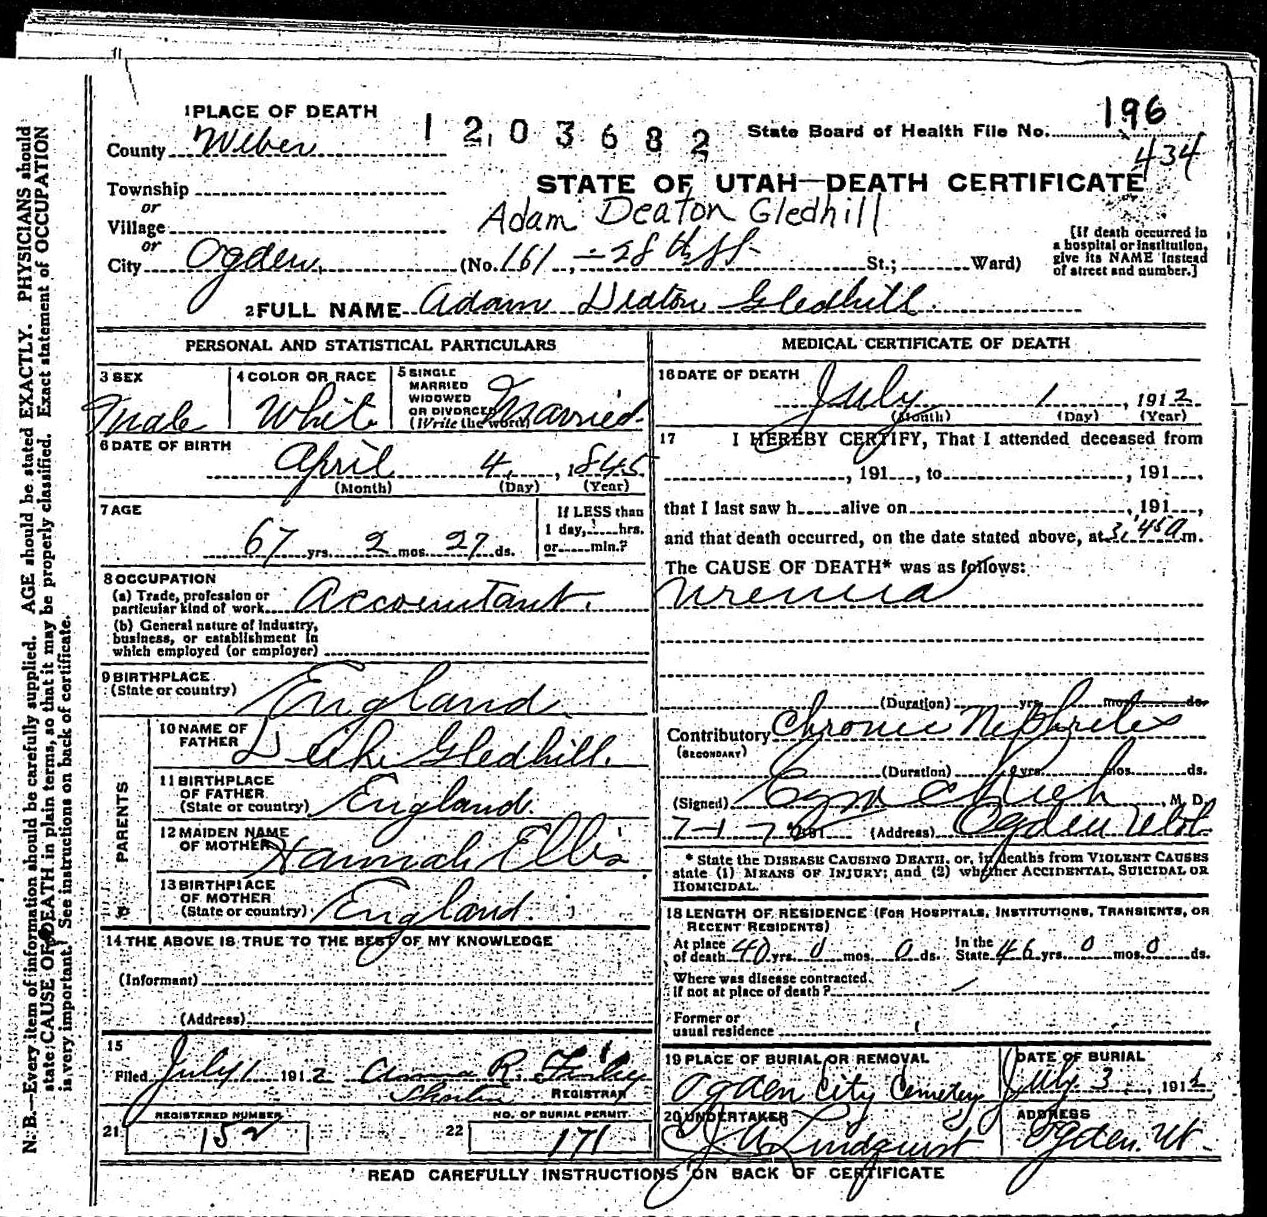 1 PLACE OF DEATH
1203682
State Board of Health File No. 196
434
County Weber
Township
or
Village
or
City Ogden, (No. 161, - 28th St. St.; Ward)
STATE OF UTAH—DEATH CERTIFICATE
Adam Deaton Gledhill
[If death occurred in
a hospital or institution,
give its NAME instead
of street and number.]
2 FULL NAME Adam Deaton Gledhill.
PERSONAL AND STATISTICAL PARTICULARS
3 SEX
Male
4 COLOR OR RACE
White
5 SINGLE
MARRIED
WIDOWED
OR DIVORCED
(Write the word)
Married.
6 DATE OF BIRTH
April 4, 1845
(Month) (Day) (Year)
7 AGE
67 yrs. 2 mos. 27 ds.
If LESS than
1 day, hrs.
or min.?
8 OCCUPATION
(a) Trade, profession or
particular kind of work Accountant.
(b) General nature of industry,
business, or establishment in
which employed (or employer)
9 BIRTHPLACE
(State or country) England.
PARENTS
10 NAME OF
FATHER Gledhill.
11 BIRTHPLACE
OF FATHER
(State or country) England.
12 MAIDEN NAME
OF MOTHER Hannah Ellis
13 BIRTHPLACE
OF MOTHER
(State or country) England.
14 THE ABOVE IS TRUE TO THE BEST OF MY KNOWLEDGE
(Informant)
(Address)
15
Filed July 1 1912 Anna R.
REGISTRAR
REGISTERED NUMBER
21 152
NO. OF BURIAL PERMIT
22 171
MEDICAL CERTIFICATE OF DEATH
16 DATE OF DEATH
July 1, 1912
(Month) (Day) (Year)
17 I HEREBY CERTIFY, That I attended deceased from
, 191 , to , 191 ,
that I last saw h alive on , 191 ,
and that death occurred, on the date stated above, at 3:45 a m.
The CAUSE OF DEATH* was as follows:
Uremia
(Duration) yrs. mos. ds.
Contributory Chronic Nephritis
(SECONDARY)
(Duration) yrs. mos. ds.
(Signed) Rich, M. D.
7-1- 191 (Address) Ogden Utah
* State the DISEASE CAUSING DEATH, or, in deaths from VIOLENT CAUSES
state (1) MEANS OF INJURY; and (2) whether ACCIDENTAL, SUICIDAL OR
HOMICIDAL.
18 LENGTH OF RESIDENCE (FOR HOSPITALS, INSTITUTIONS, TRANSIENTS, OR
RECENT RESIDENTS)
At place
of death 40 yrs. 0 mos. 0 ds. In the
State 46 yrs. 0 mos. 0 ds.
Where was disease contracted,
if not at place of death?
Former or
usual residence
19 PLACE OF BURIAL OR REMOVAL
Ogden City Cemetery
DATE OF BURIAL
July 3, 1912
20 UNDERTAKER
J A Lindquist
ADDRESS
Ogden. Ut.
READ CAREFULLY INSTRUCTIONS ON BACK OF CERTIFICATE
N. B.—Every item of information should be carefully supplied. AGE should be stated EXACTLY. PHYSICIANS should
state CAUSE OF DEATH in plain terms, so that it may be properly classified. Exact statement of OCCUPATION
is very important. See instructions on back of certificate.